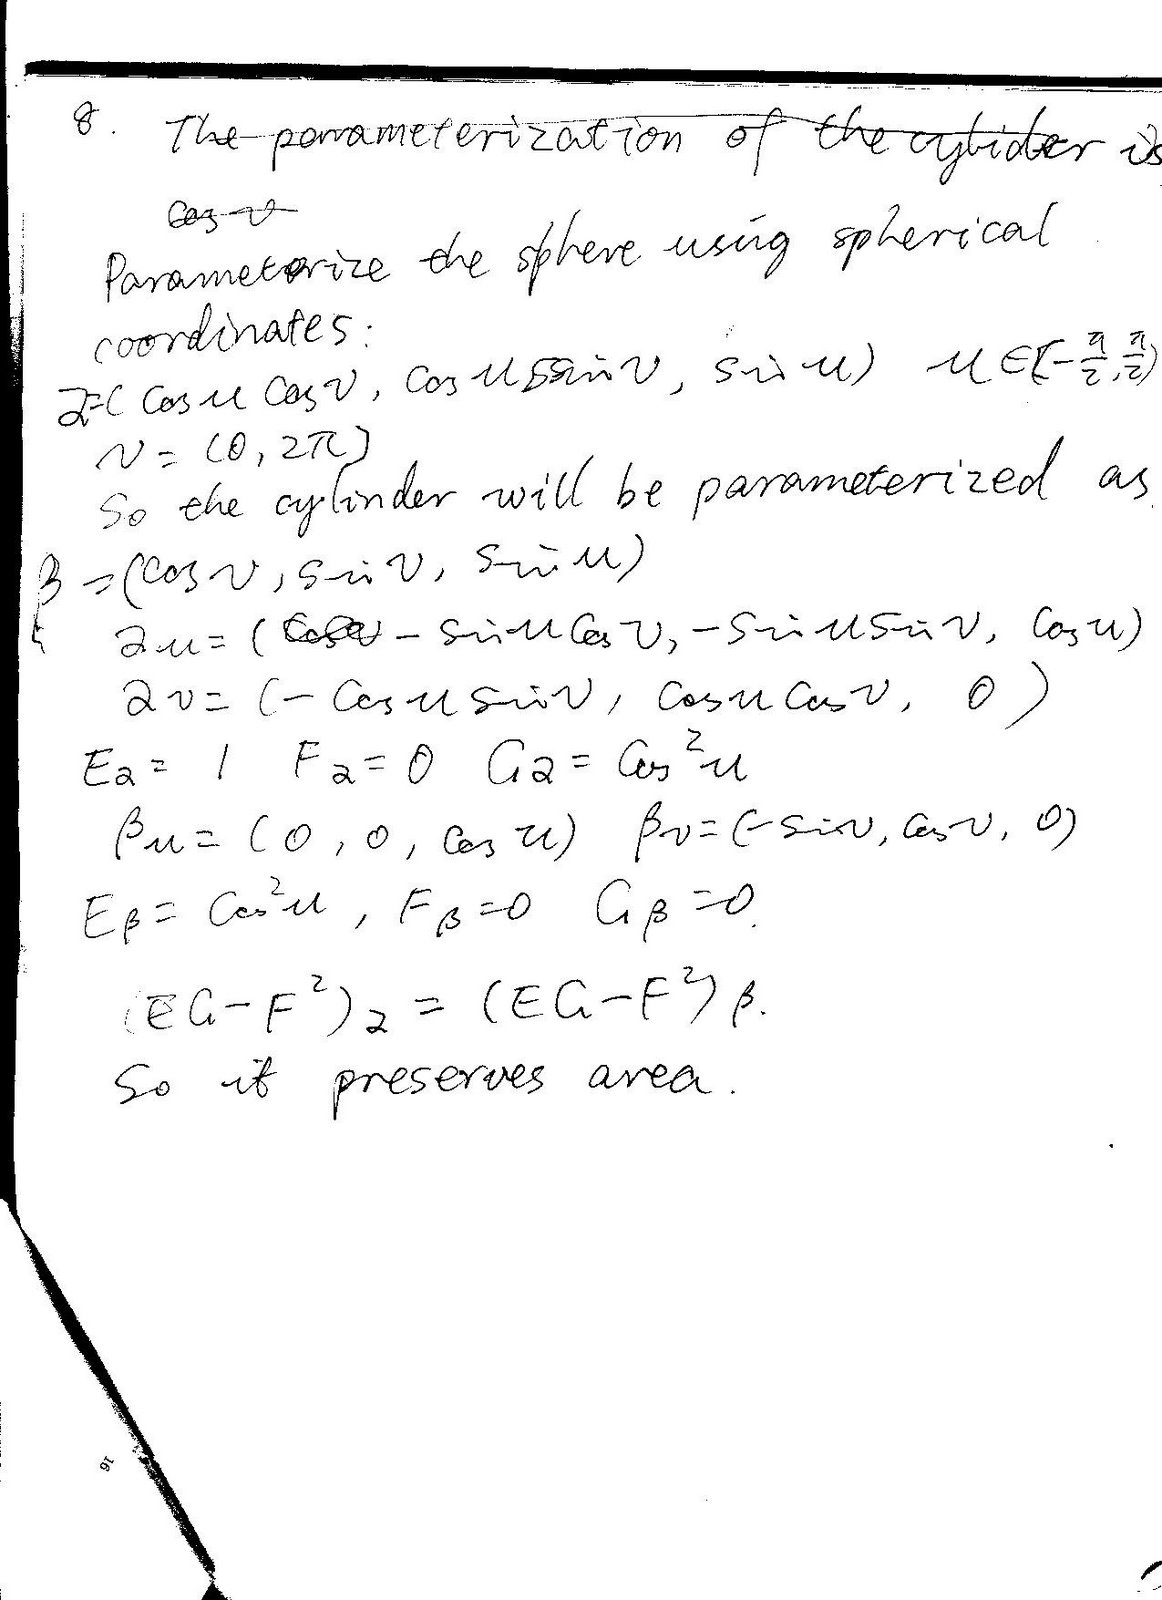 8. The parameterization of the cylider is
cos v
Parameterize the sphere using spherical
coordinates:
α=(cos u cos v, cos u sin v, sin u) u∈[-π/2, π/2)
v = (0, 2π]
So the cylinder will be parameterized as
β =(cos v, sin v, sin u)
αu = ( - sin u cos v, - sin u sin v, cos u)
αv = (- cos u sin v, cos u cos v, 0 )
Eα = 1 Fα = 0 Gα = cos²u
βu = (0, 0, cos u) βv = (-sin v, cos v, 0)
Eβ = cos²u, Fβ = 0 Gβ = 0.
(EG-F²)α = (EG-F²)β.
So it preserves area.
16